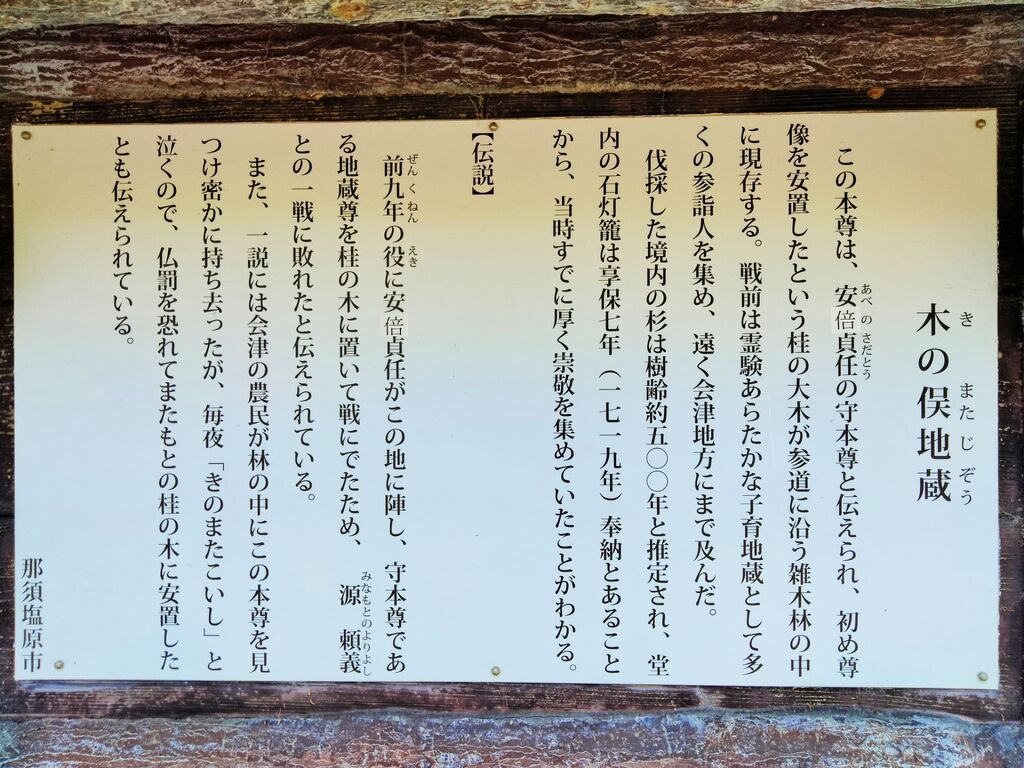 木の俣地蔵
き また じ ぞう
この本尊は、安倍貞任の守本尊と伝えられ、初め尊
あべ の さだとう
像を安置したという桂の大木が参道に沿う雑木林の中
に現存する。戦前は霊験あらたかな子育地蔵として多
くの参詣人を集め、遠く会津地方にまで及んだ。
伐採した境内の杉は樹齢約五〇〇年と推定され、堂
内の石灯籠は享保七年（一七一九年）奉納とあること
から、当時すでに厚く崇敬を集めていたことがわかる。
【伝説】
前九年の役に安倍貞任がこの地に陣し、守本尊であ
ぜん く ねん えき
る地蔵尊を桂の木に置いて戦にでたため、 源 頼義
みなもとのよりよし
との一戦に敗れたと伝えられている。
また、一説には会津の農民が林の中にこの本尊を見
つけ密かに持ち去ったが、毎夜「きのまたこいし」と
泣くので、仏罰を恐れてまたもとの桂の木に安置した
とも伝えられている。
那須塩原市